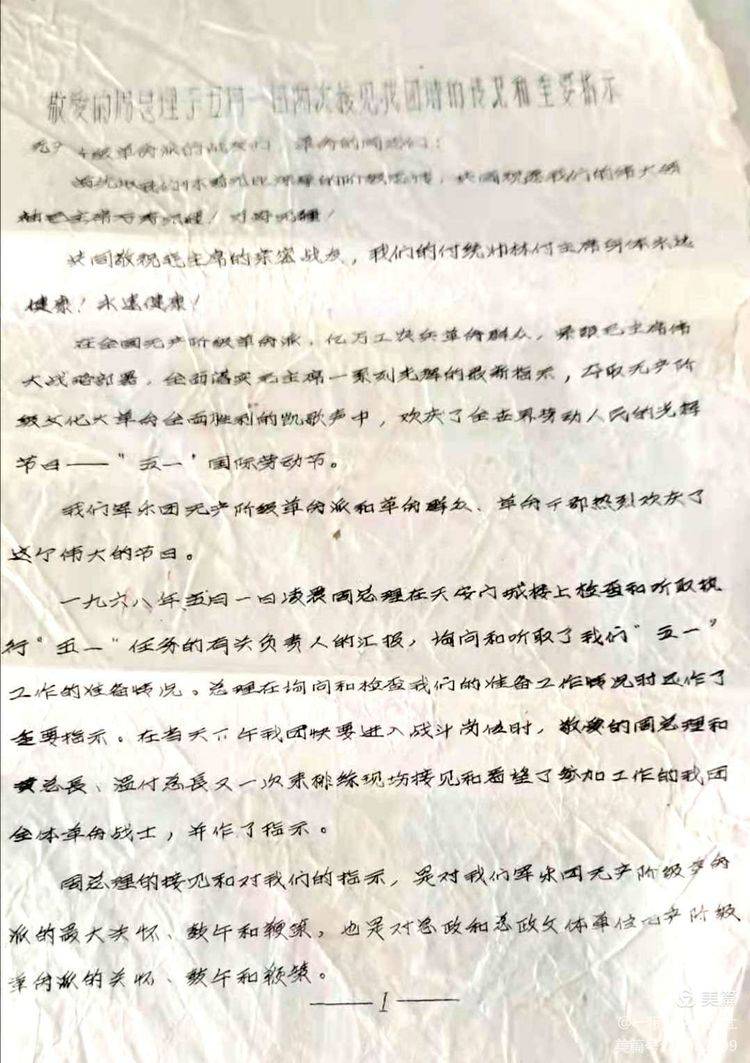 敬爱的周总理于五月一日两次接见我团时的情况和重要指示
无产阶级革命派的战友们 革命的同志们：
首先让我们怀着无比深厚的阶级感情，共同祝愿我们的伟大领
袖毛主席万寿无疆！万寿无疆！
共同敬祝毛主席的亲密战友，我们的付统帅林付主席身体永远
健康！永远健康！
在全国无产阶级革命派，亿万工农兵革命群众，紧跟毛主席伟
大战略部署，全面落实毛主席一系列光辉的最新指示，夺取无产阶
级文化大革命全面胜利的凯歌声中，欢庆了全世界劳动人民的光辉
节日——“五一”国际劳动节。
我们军乐团无产阶级革命派和革命群众、革命干部热烈欢庆了
这个伟大的节日。
一九六八年五月一日凌晨周总理在天安门城楼上检查和听取执
行“五一”任务的有关负责人的汇报，询问和听取了我们“五一”
工作的准备情况。总理在询问和检查我们的准备工作情况时还作了
重要指示。在当天下午我团快要进入战斗岗位时，敬爱的周总理和
黄总长、温付总长又一次来排练现场接见和看望了参加工作的我团
全体革命战士，并作了指示。
周总理的接见和对我们的指示，是对我们军乐团无产阶级革命
派的最大关怀、鼓午和鞭策，也是对总政和总政文体单位无产阶级
革命派的关怀、鼓午和鞭策。
1
美篇